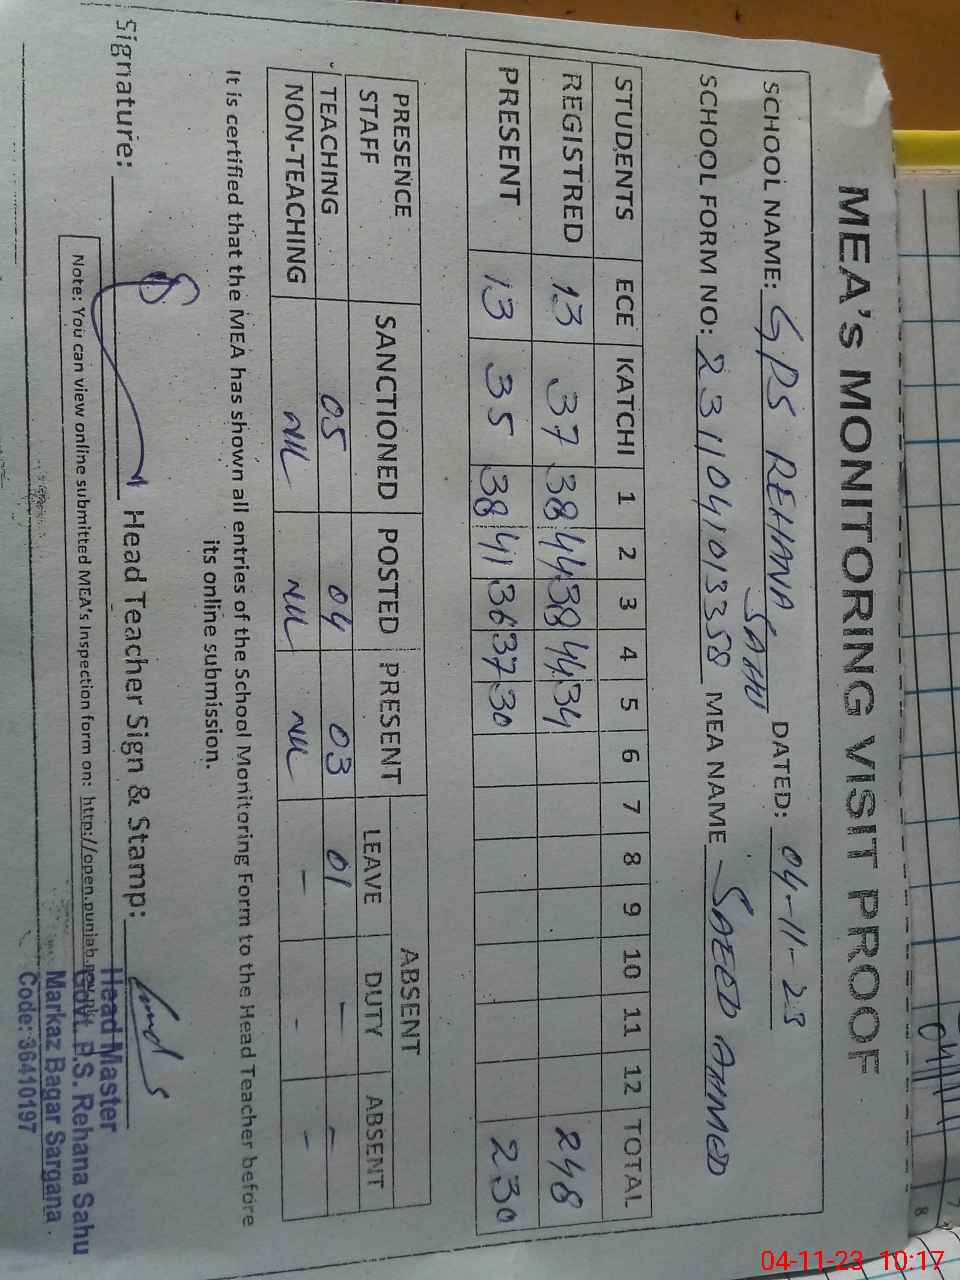 MEA's MONITORING VISIT PROOF
SCHOOL NAME: GPS REHANA SAHU DATED: 04-11-23
SCHOOL FORM NO: 23110410133358 MEA NAME SAEED AHMED
STUDENTS ECE KATCHI 1 2 3 4 5 6 7 8 9 10 11 12 TOTAL
REGISTRED 13 37 38 44 38 44 34 248
PRESENT 13 35 38 41 36 37 30 230
PRESENCE STAFF SANCTIONED POSTED PRESENT ABSENT
LEAVE DUTY ABSENT
TEACHING 05 04 03 01 - -
NON-TEACHING NIL NIL NIL - - -
It is certified that the MEA has shown all entries of the School Monitoring Form to the Head Teacher before
its online submission.
Signature: Head Teacher Sign & Stamp:
Note: You can view online submitted MEA's Inspection form on: http://open.punjab
Head Master
Govt. P.S. Rehana Sahu
Markaz Bagar Sargana
Code: 36410197
04
8
04-11-23 10:17